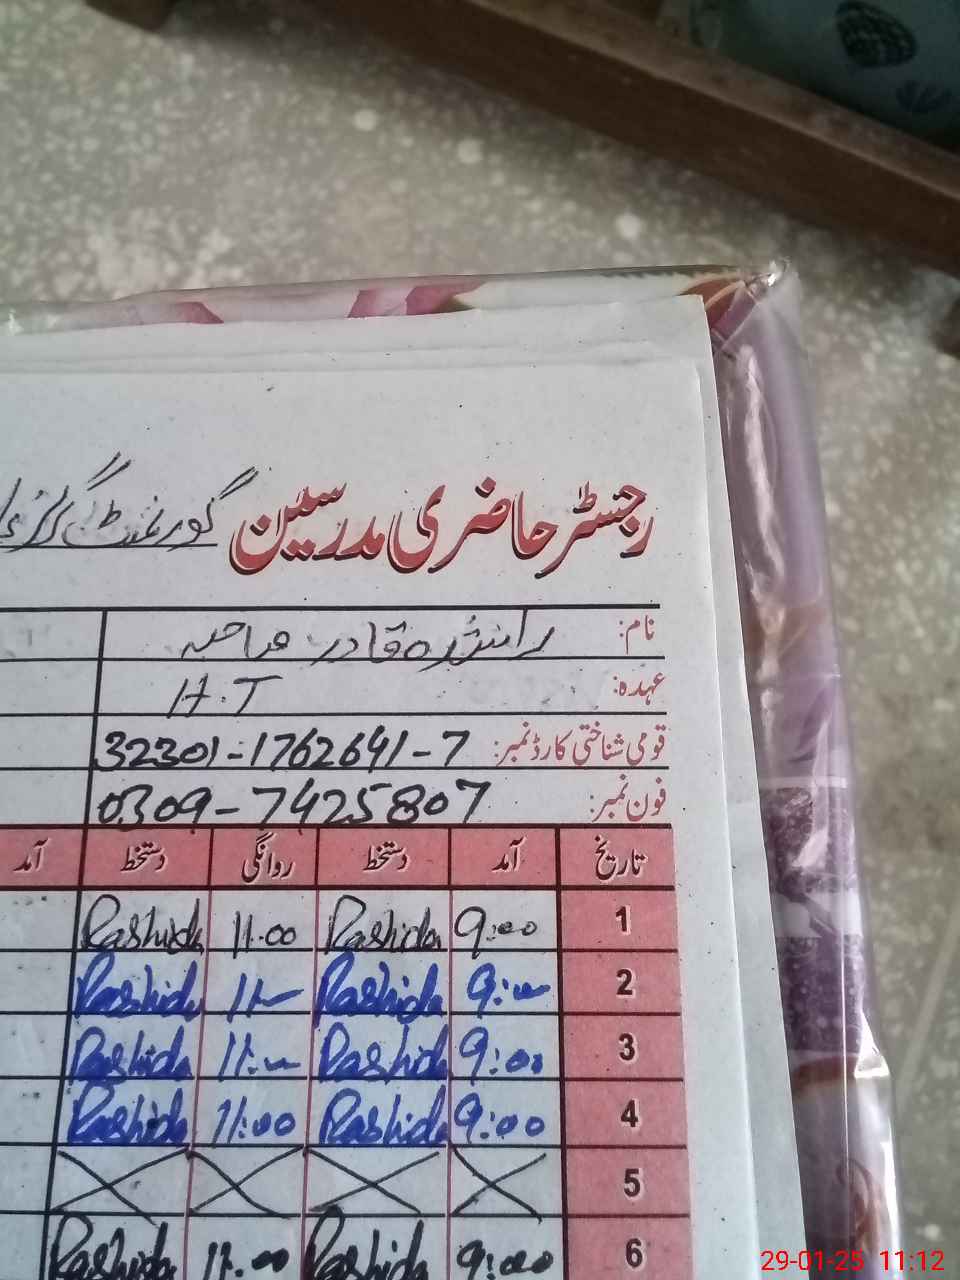 رجسٹر حاضری مدرسین گورنمنٹ گرلز
نام: راشدہ قادر صاحبہ
عہدہ: H.T
قومی شناختی کارڈ نمبر: 32301-1762641-7
فون نمبر: 0309-7425807
تاریخ آمد دستخط روانگی دستخط آمد
1 9:00 Rashida 11.00 Rashida
2 9:00 Rashida 11:00 Rashida
3 9:00 Rashida 11:00 Rashida
4 9:00 Rashida 11:00 Rashida
5
6 9:00 Rashida 11.00 Rashida
29-01-25 11:12